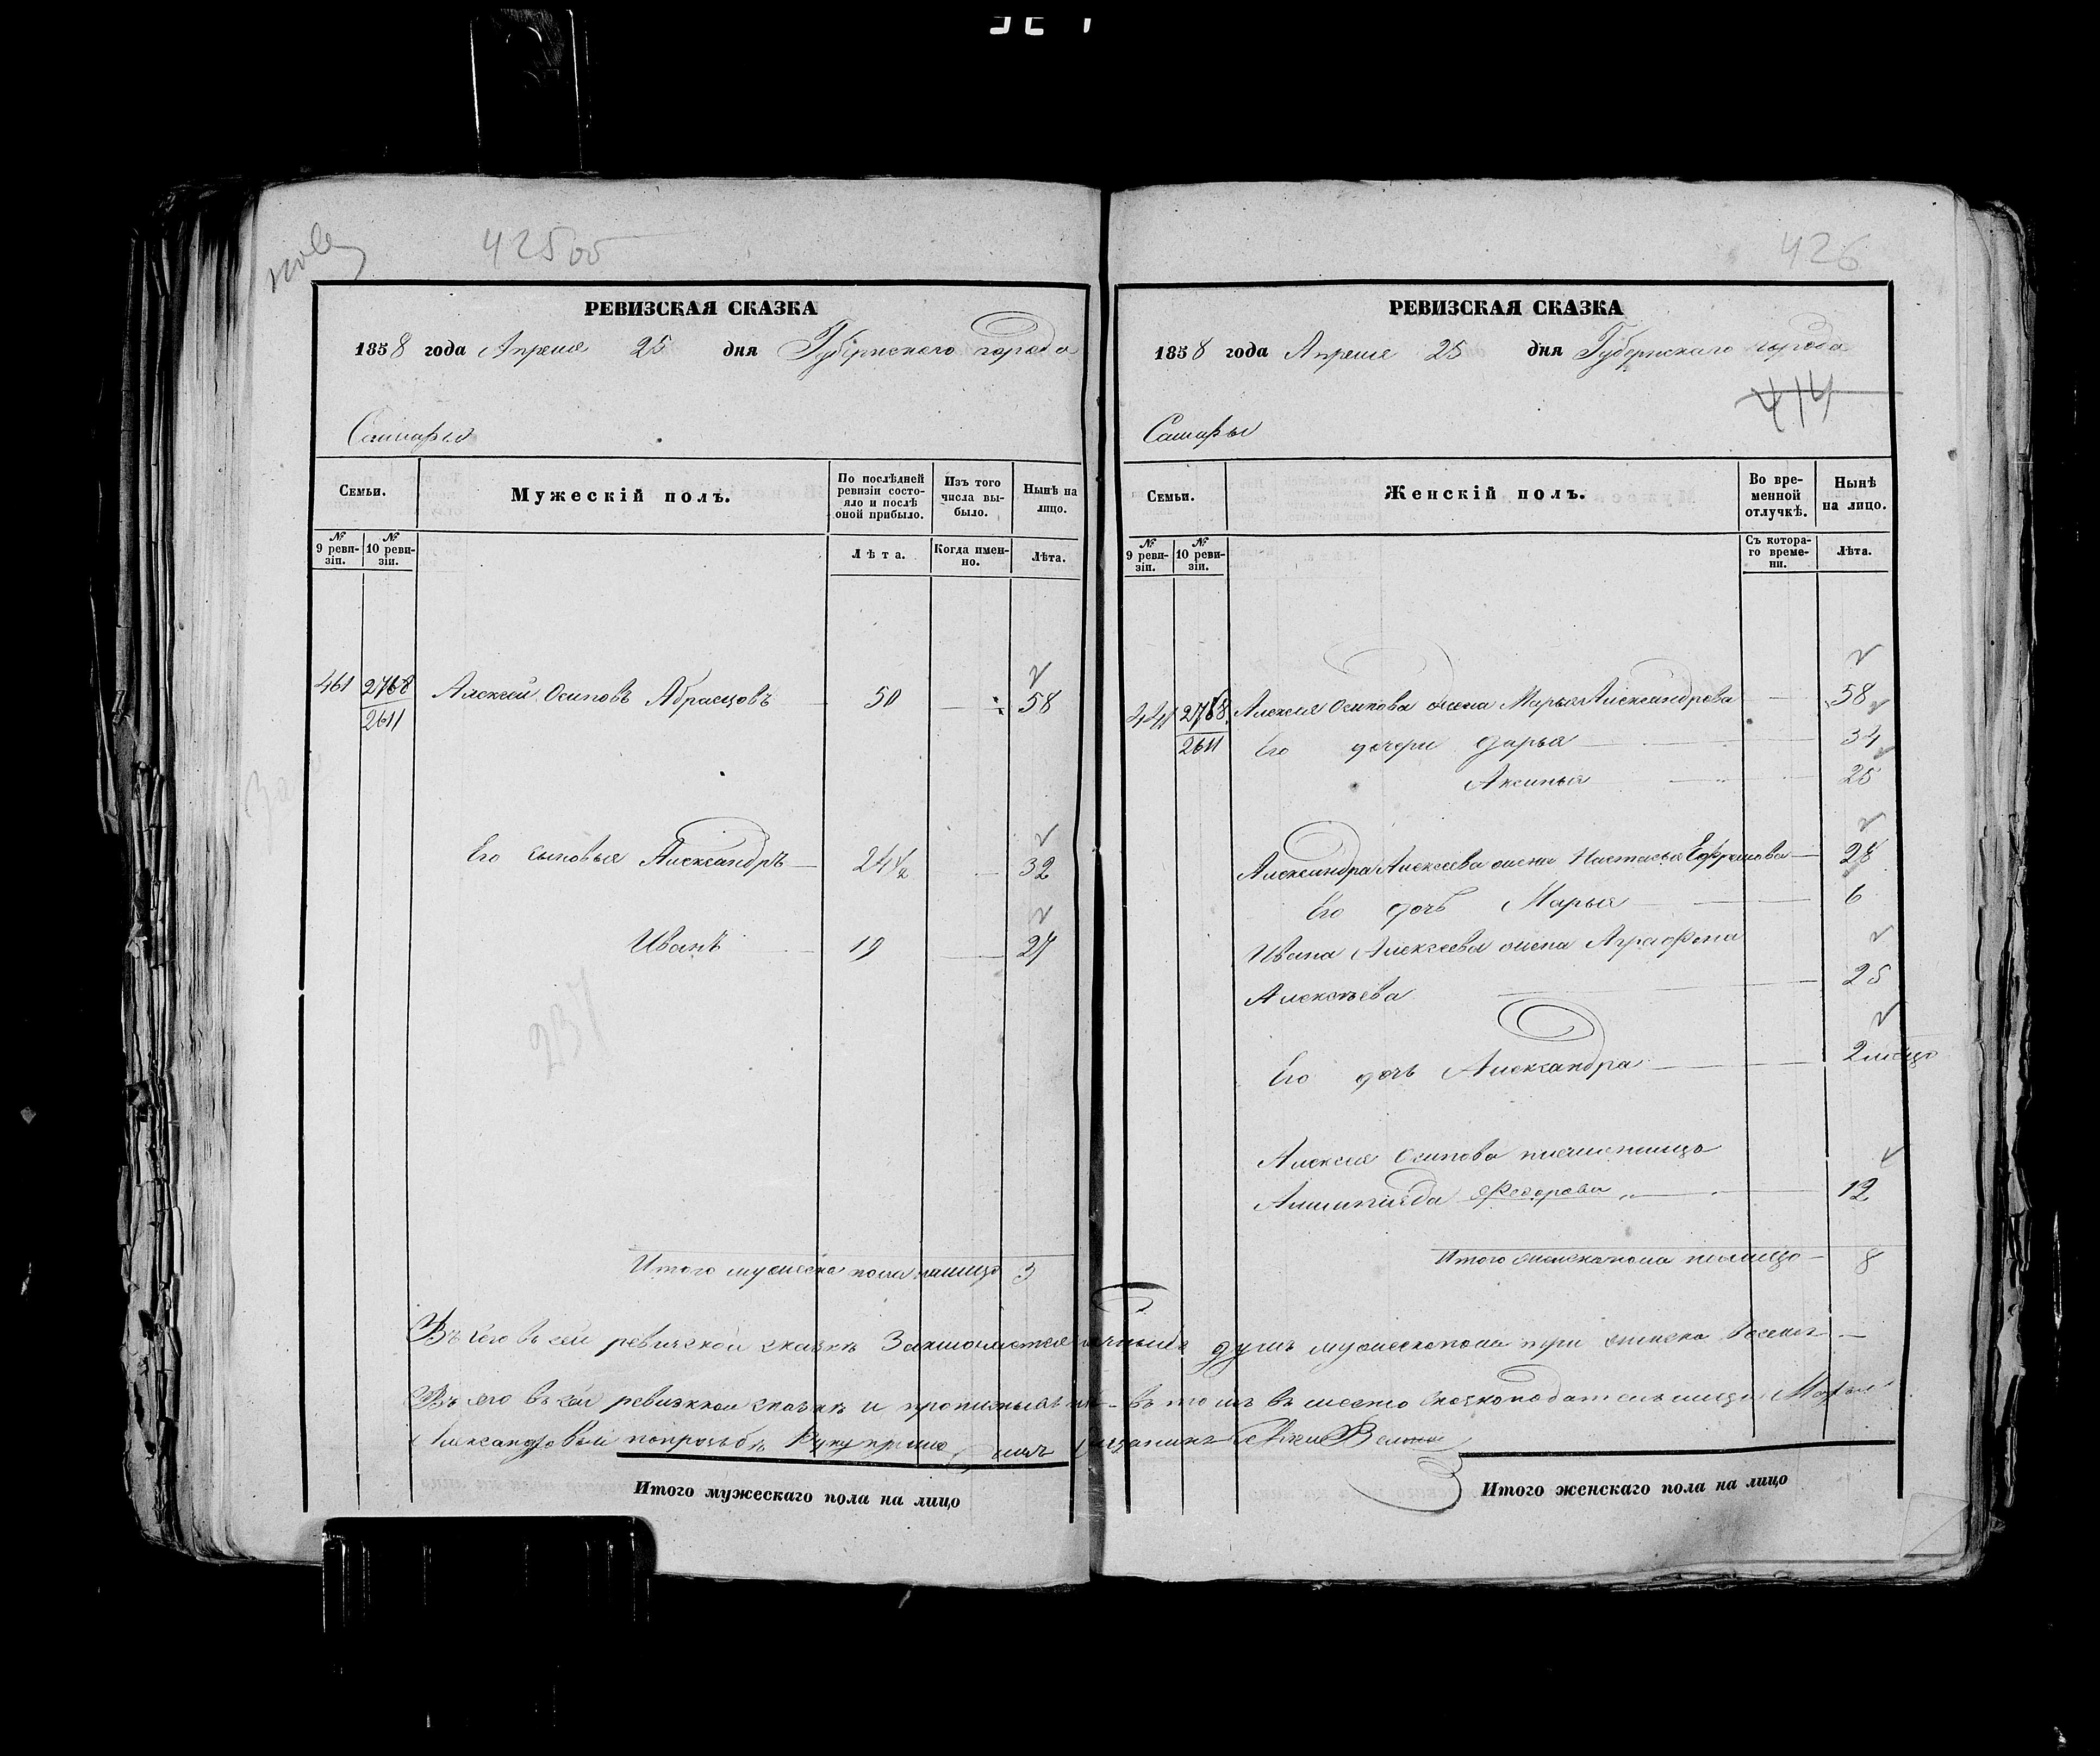 42500
РЕВИЗСКАЯ СКАЗКА
1858 года Апреля 25 дня Губернского города
Самары
Семьи.
Мужескій полъ.
По послѣдней ревизіи состояло и послѣ оной прибыло.
Изъ того числа выбыло.
Нынѣ на лицо.
№ 9 ревизіи.
№ 10 ревизіи.
Лѣта.
Когда именно.
Лѣта.
461 2768 Алексей Осиповъ Абрасцовъ 50 58
2611
Его сыновья Александръ 24½ 32
Иванъ 19 27
237
Итого мужеска пола налицо 3
426
РЕВИЗСКАЯ СКАЗКА
1858 года Апреля 25 дня Губернскаго города
414
Самары
Семьи.
Женскій полъ.
Во временной отлучкѣ.
Нынѣ на лицо.
№ 9 ревизіи.
№ 10 ревизіи.
Съ котораго времени.
Лѣта.
2768 Алексея Осипова жена Марья Александрова 58
2611 Его дочери Дарья 34
Аксинья 25
Александра Алексеева жена Настасья Ефремова 28
Его дочь Марья 6
Ивана Алексеева жена Аграфена
Алексѣева 25
Его дочь Александра 2 месяцо
Алексея Осипова племянница
Алимпияда Федорова 12
Итого женска пола налицо 8
Въ сей ревиской сказкѣ Заключается душъ мужеска пола три женска восемь
Въ сей ревизкои сказкѣ и въ томъ въ место сказкоподательницы Марьи
Александровый по прозьбѣ Руку приложилъ мещанинъ
Итого мужескаго пола на лицо
Итого женскаго пола на лицо